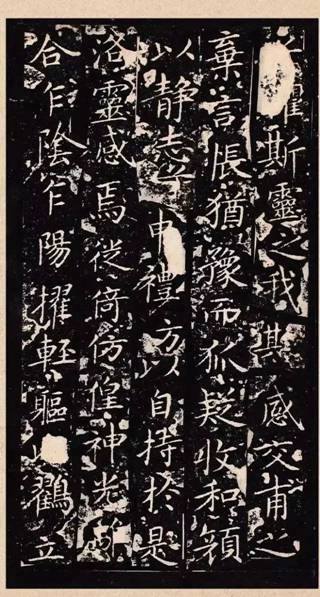 懼斯靈之我欺感交甫之
棄言悵猶豫而狐疑收和顏
以静志兮申禮防以自持於是
洛靈感焉徙倚仿偟神光
合乍陰乍陽擢輕軀以鶴立